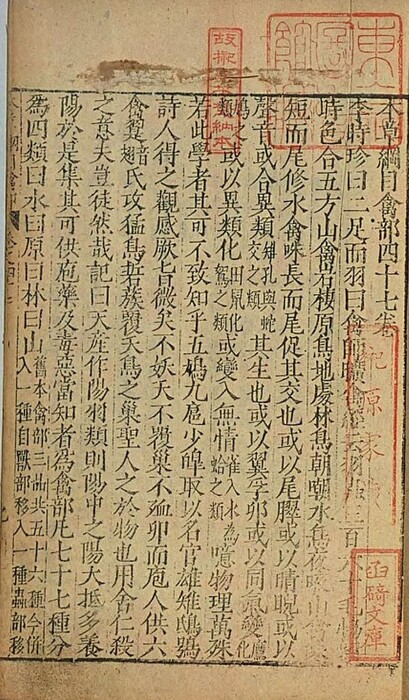 本草綱目禽部四十七卷
李時珍曰二足而羽曰禽師曠禽經云羽蟲三百六十毛協四
時色合五方山禽岩棲原鳥地處林鳥朝嘲水鳥夜㖡山禽咮
短而尾修水禽咮長而尾促其交也或以尾臎或以睛睨或以
聲音或合異類雉孔與蛇交之類其生也或以翼孚卵或以同氣變鷹化
鳩之類或以異類化田鼠化鴽之類或變入無情雀入水為蛤之類噫物理萬殊
若此學者其可不致知乎五鳩九扈少皥取以名官雄雉鴟鴞
詩人得之觀感厥旨微矣不妖夭不覆巢不殈卵而庖人供六
禽翨音翅氏攻猛鳥硩蔟覆夭鳥之巢聖人之於物也用舍仁殺
之意夫豈徒然哉記曰天產作陽羽類則陽中之陽大抵多養
陽於是集其可供庖藥及毒惡當知者為禽部凡七十七種分
為四類曰水曰原曰林曰山舊本禽部三品共五十六種今併入一種自獸部移入一種蟲部移
榊原家藏
函碕文庫